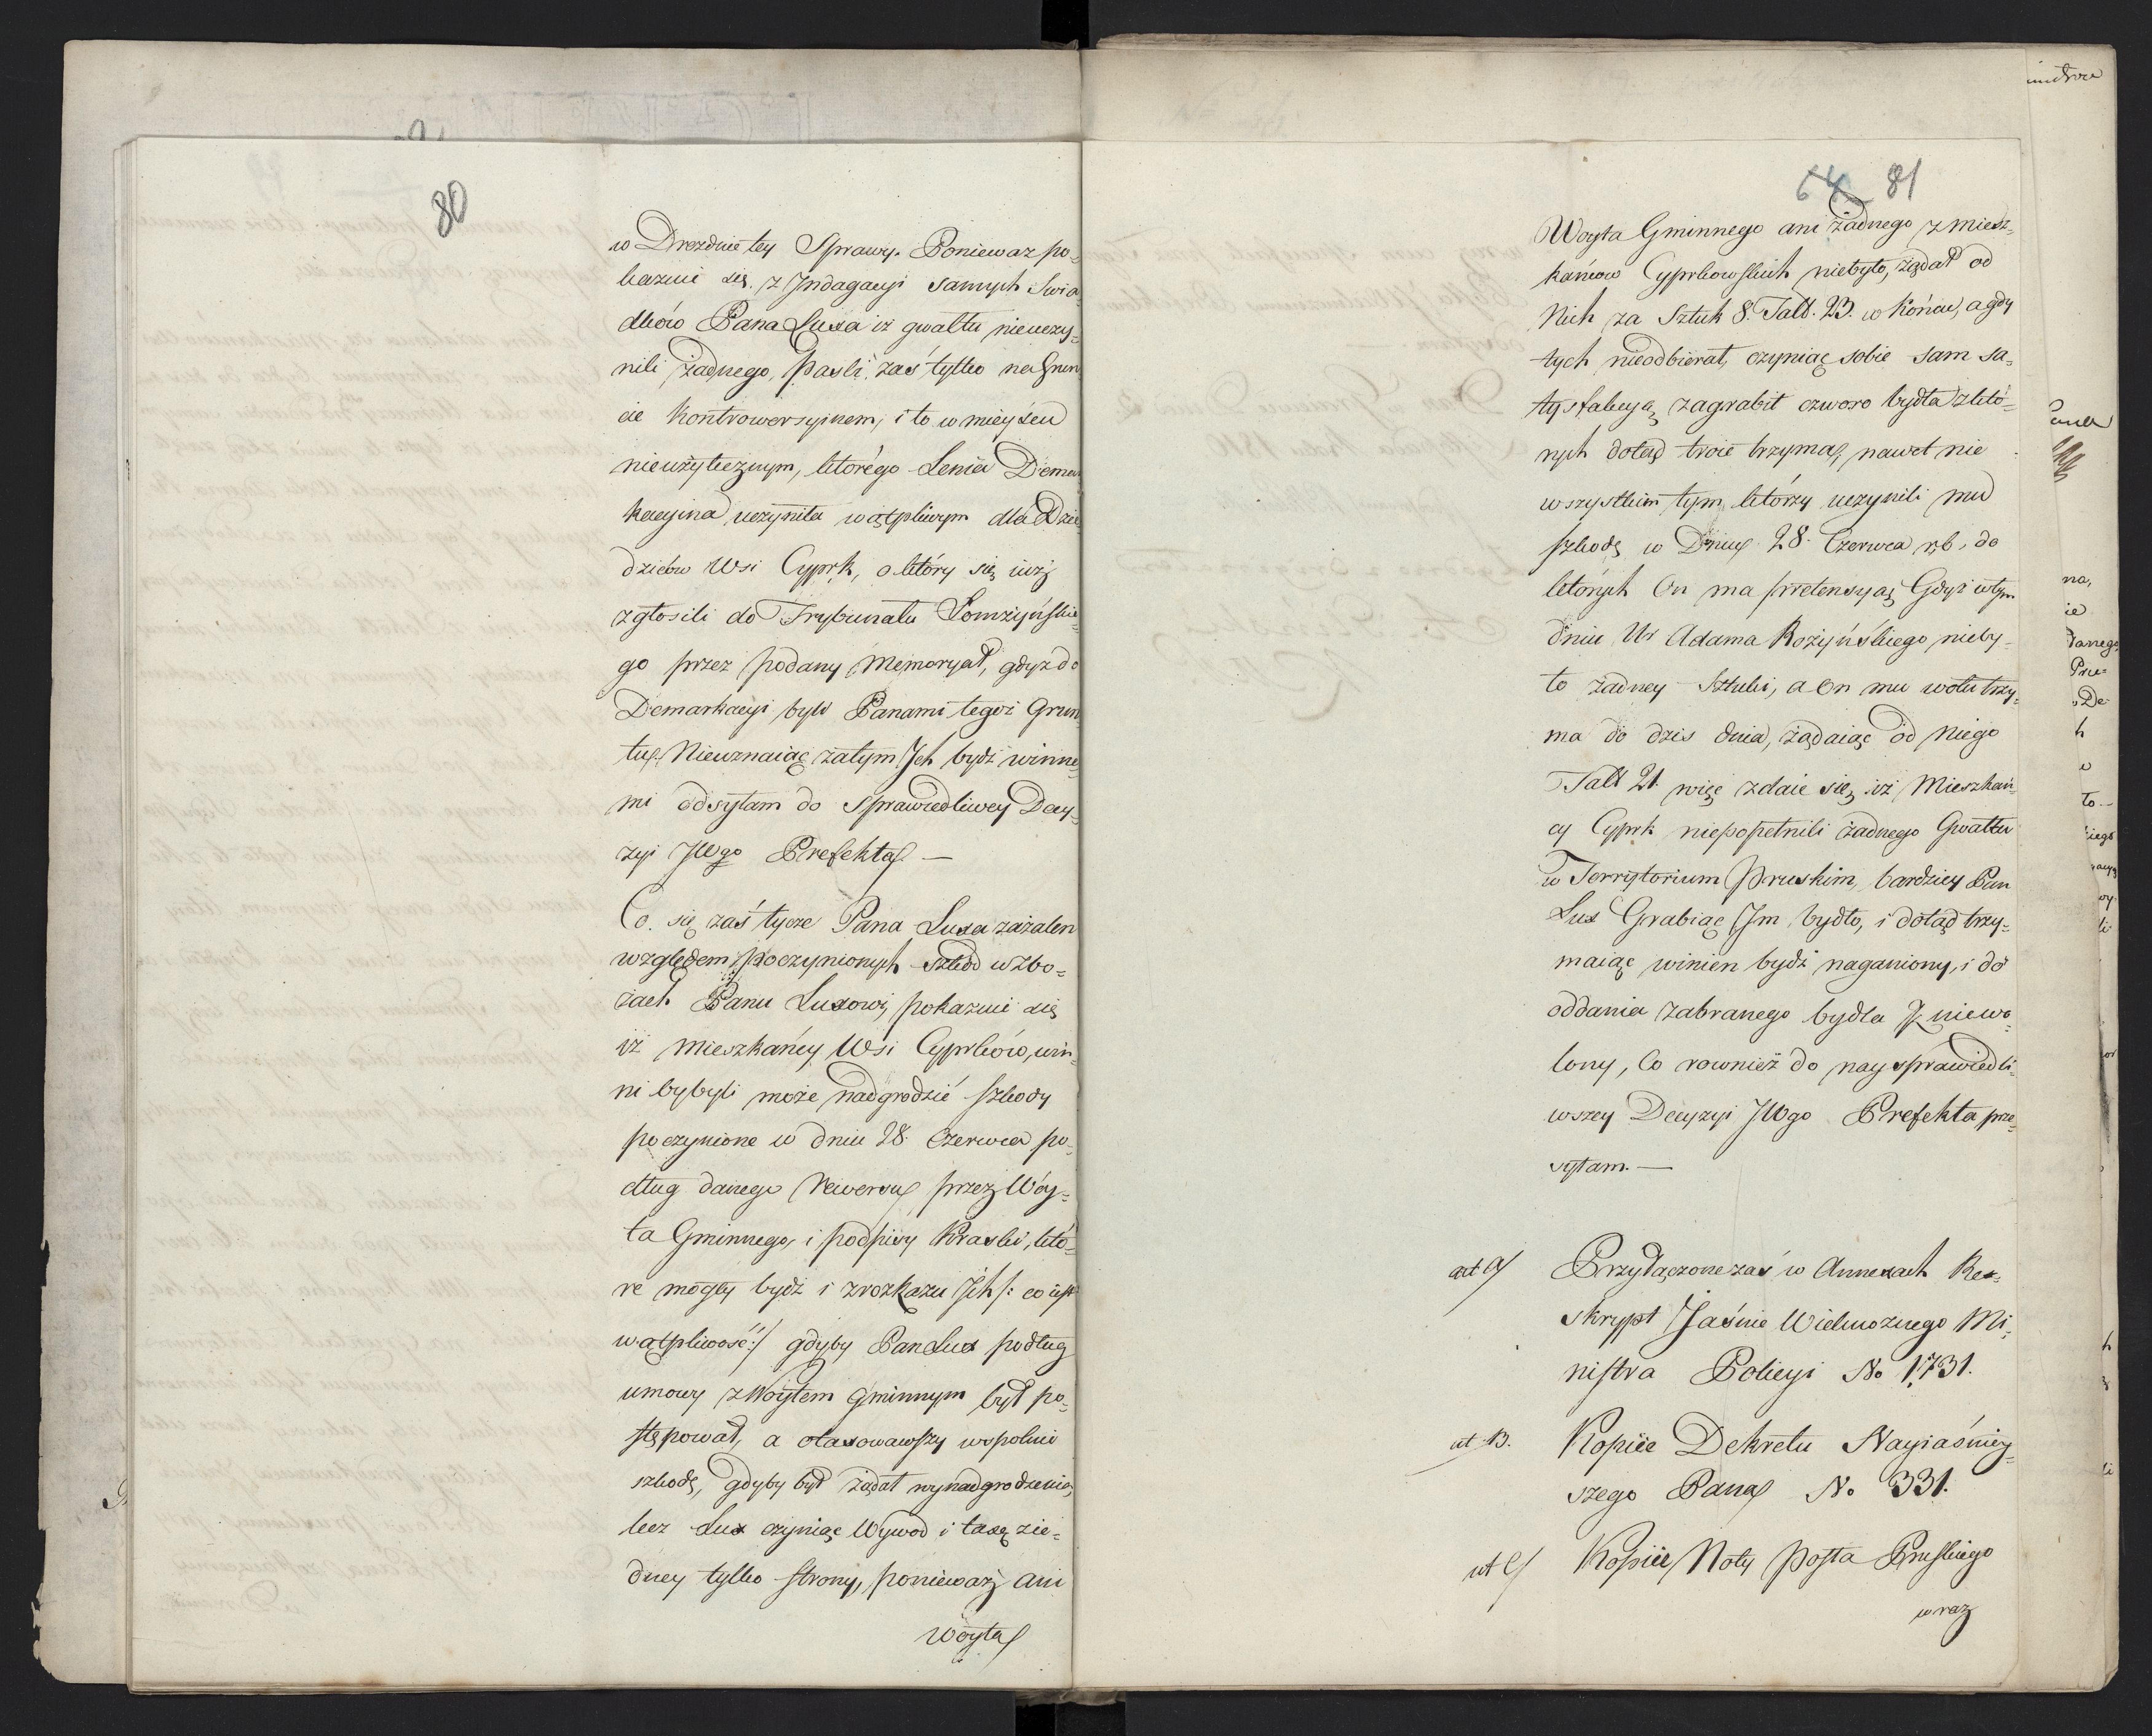 80
w Dreznie tey Sprawy. Poniewaz po=
kazuie się z Jndagacyi samych Swia=
dków Pana Luxa iż gwałtu nieuczy=
nili żadnego, paśli zaś tylko na Grun=
cie Kontrowersyinem, i to w mieyscu
nieużytecznym, którego Lenia Demar=
kacyina uczyniła wątpliwym dla Dzie=
dziców Wsi Cyprk, o który się iuż
zgłosili do Trybunału Łomżyńskie=
go przez podany Memoryał, gdyż do
Demarkacyi byli Panami tegoż Grun=
tu. Nieuznaiąc zatym Jch bydź winne=
mi odsyłam do sprawiedliwey Decy=
zyi JWgo Prefekta —
Co się zaś tycze Pana Luxa zażaleń
względem poczynionych szkód w zbo=
żach Panu Luxowi, pokazuie się
iż Mieszkańcy Wsi Cyprków, win=
ni bybyli może nadgrodzić szkody
poczynione w dniu 28. Czerwca po=
dług danego Rewersu przez Wóy=
ta Gminnego, i podpisy Kraski, któ=
re mogły bydź i z rozkazu Jch /: co iest
wątpliwość :/ gdyby Pan Lux podług
umowy z Woytem Gminnym był po=
stępował, a otaxowawszy wspolnie
szkodę, gdyby był żądał wynadgrodzenia,
lecz Lux czyniąc Wywod i taxę z ie=
dney tylko strony, ponieważ ani
Wóyta
64 81
Woyta Gminnego ani żadnego z miesz=
kańcow Cyprkowskich niebyło, żądał od
Nich za Sztuk 8. Tall. 23. w końcu, a gdy
tych nieodbierał, czyniąc sobie sam sa=
tysfakcyą, zagrabił czworo bydła z któ=
rych dotąd troie trzyma, nawet nie
wszystkim tym, którzy uczynili mu
szkodę w Dniu 28. Czerwca r. b. do
których On ma pretensyą, Gdyż w tym
dniu Ur Adama Rożyńskiego nieby=
ło żadney Sztuki, a On mu wołu trzy=
ma do dzis dnia, żądaiąc od niego
Tall 21. więc zdaie się, iż Mieszkań=
cy Cyprk niepopełnili żadnego Gwałtu
w Territorium Pruskim, bardziey Pan
Lux Grabiąc Jm bydło, i dotąd trzy=
maiąc winien bydź naganiony, i do
oddania zabranego bydła zniewo=
lony, Co rownież do nay sprawiedli=
wszey Decyzyi JWgo Prefekta prze=
syłam. —
ut A/ Przyłączone zaś w Annexach Re=
skrypt Jaśnie Wielmożnego Mi=
nistra Policyi No 1,731.
ut B. Kopiie Dekretu Nayiaśniey=
szego Pana No 331.
ut C/ Kopiie Noty Posła Pruskiego
wraz